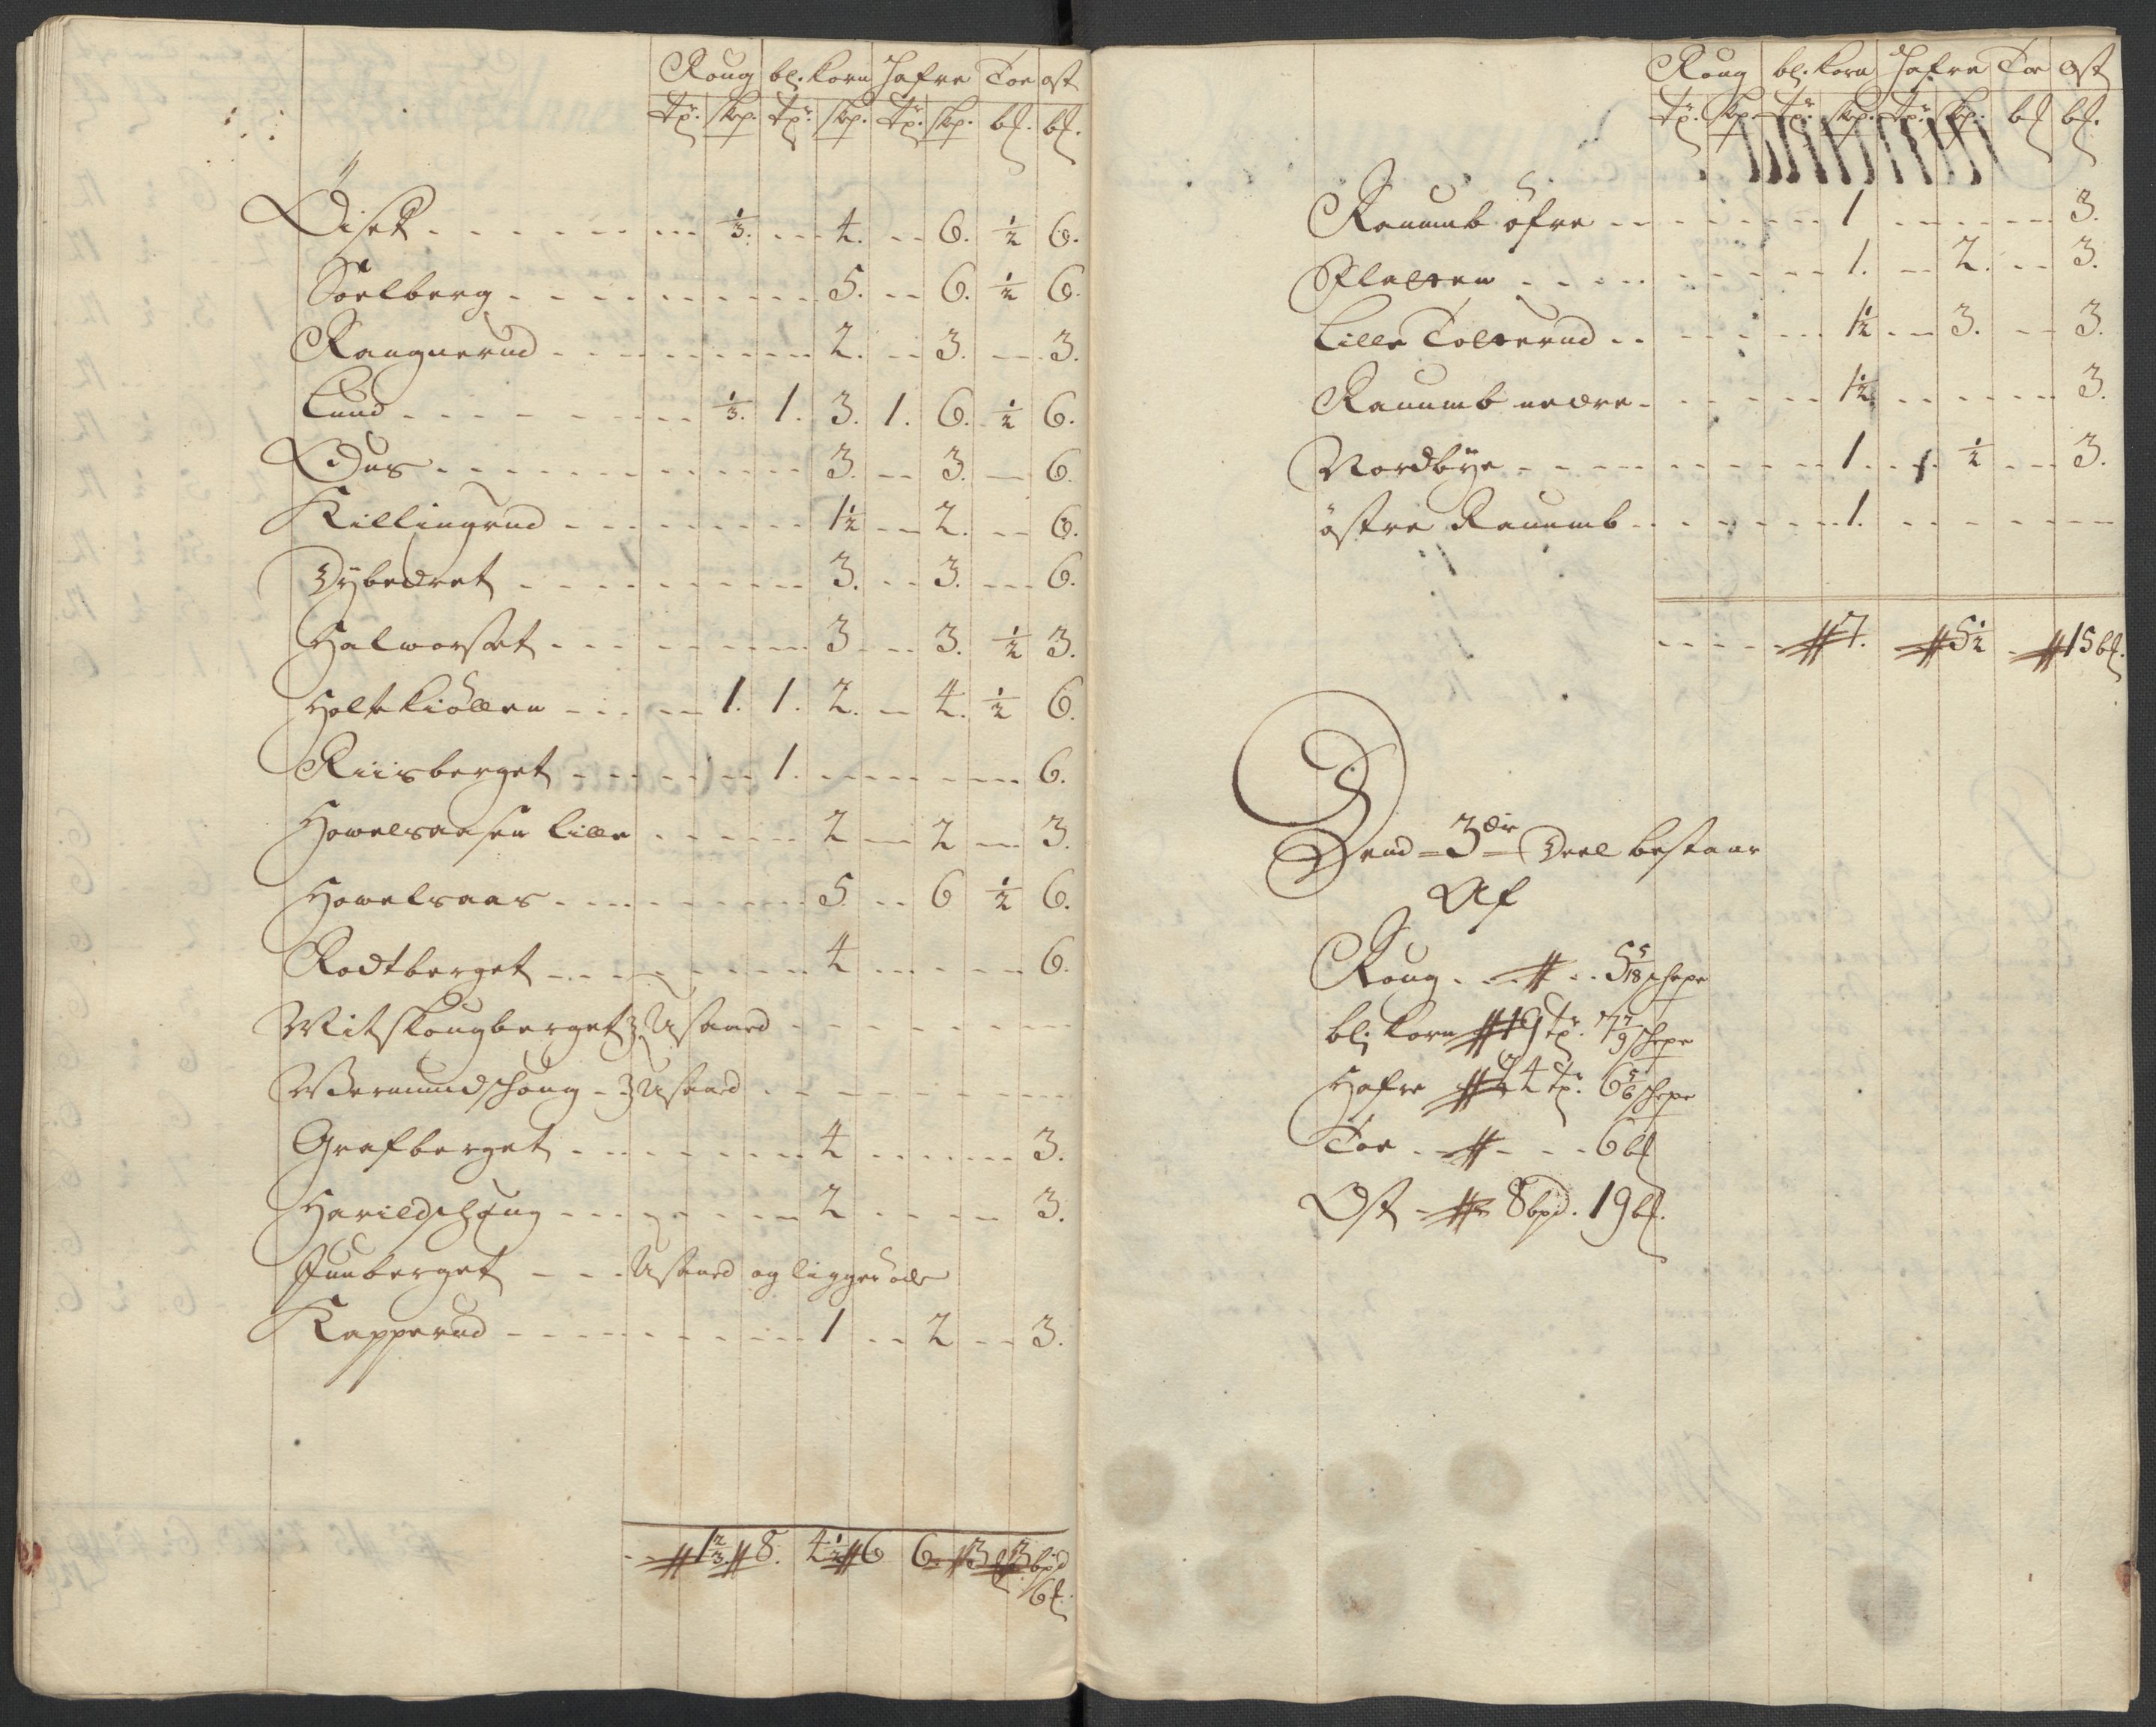 Roug bl. Korn Hafre Toe ost
tr. skp. tr. skp. tr. skp. bl. bl.
Diset 1/3. 4. 6. 1/2 6.
Soelberg 5. 6. 1/2 6.
Raugnerud 2. 3. 3.
Lund 1/3. 1. 3. 1. 6. 1/2 6.
Duus 3. 3. 6.
Killingrud 1 1/2 2. 6.
Dybedret 3. 3. 6.
Halworset 3 3. 1/2 3.
Holtekiöllen 1. 1. 2. 4. 1/2 6.
Riisberget 1. 6.
Howelsaasen Lille 2 2 3.
Howelsaas 5. 6 1/2 6.
Rodtberget 4 6.
Witskougberget Usaaed
Wermundschoug Usaaed
Grafberget 4 3.
Harildschoug 2 3.
Juuberget Usaaed og ligger øde
Kapperud 1 2 3.
1 2/3 8. 4 1/2 6 6 3 3 bpd
6 bl.
Roug bl. Korn Hafre Toe Ost
tr. skp. tr. skp. tr. skp. bl. bl.
Rauumb öfre 1 3.
Flatten 1. 2. 3.
Lille Tolterud 1 1/2 3. 3.
Rauumb nedre 1 1/2 3.
Nordbye 1 1/2 3.
östre Rauumb 1.
7. 5 1/2 15 bl.
Dend 3die Deel bestaar
Af
Roug 5 5/18 schepe
bl. Korn 19 tr. 7 7/9 schepe
Hafre 24 tr. 6 5/6 schepe
Toe 6 bl
Ost 8 bpd. 19 bl.